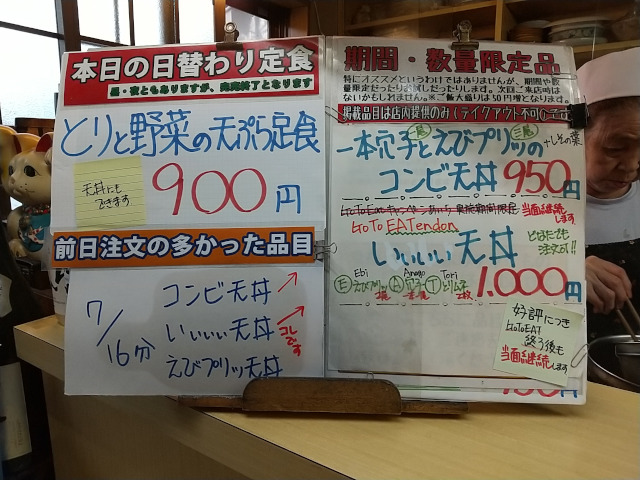 本日の日替わり定食
昼・夜ともありますが、売切終了となります
とりと野菜の天ぷら定食
天丼にも
できます
900円
前日注文の多かった品目
7/16分
コンビ天丼
いぃぃぃ天丼
コレです
えびプリッ天丼
期間・数量限定品
特にオススメというわけではありませんが、期間や数
量限定だったりお試しだったりします。次回ご来店時は
ないかもしれません。※ご飯大盛りは50円増となります。
掲載品目は店内提供のみ(テイクアウト不可)
一本穴子とえびプリッの
一尾
三尾
+しその葉
コンビ天丼 950円
当面継続
します
GoTo EATendon
いぃぃぃ天丼
とはにも
注文多!!
Ebi Anago Tori
1.000円
Ⓔえびプリッ Ⓐ穴子 Ⓣとりム子
2尾 一本 2枚
好評につき
GoToEAT
終了後も
当面継続します